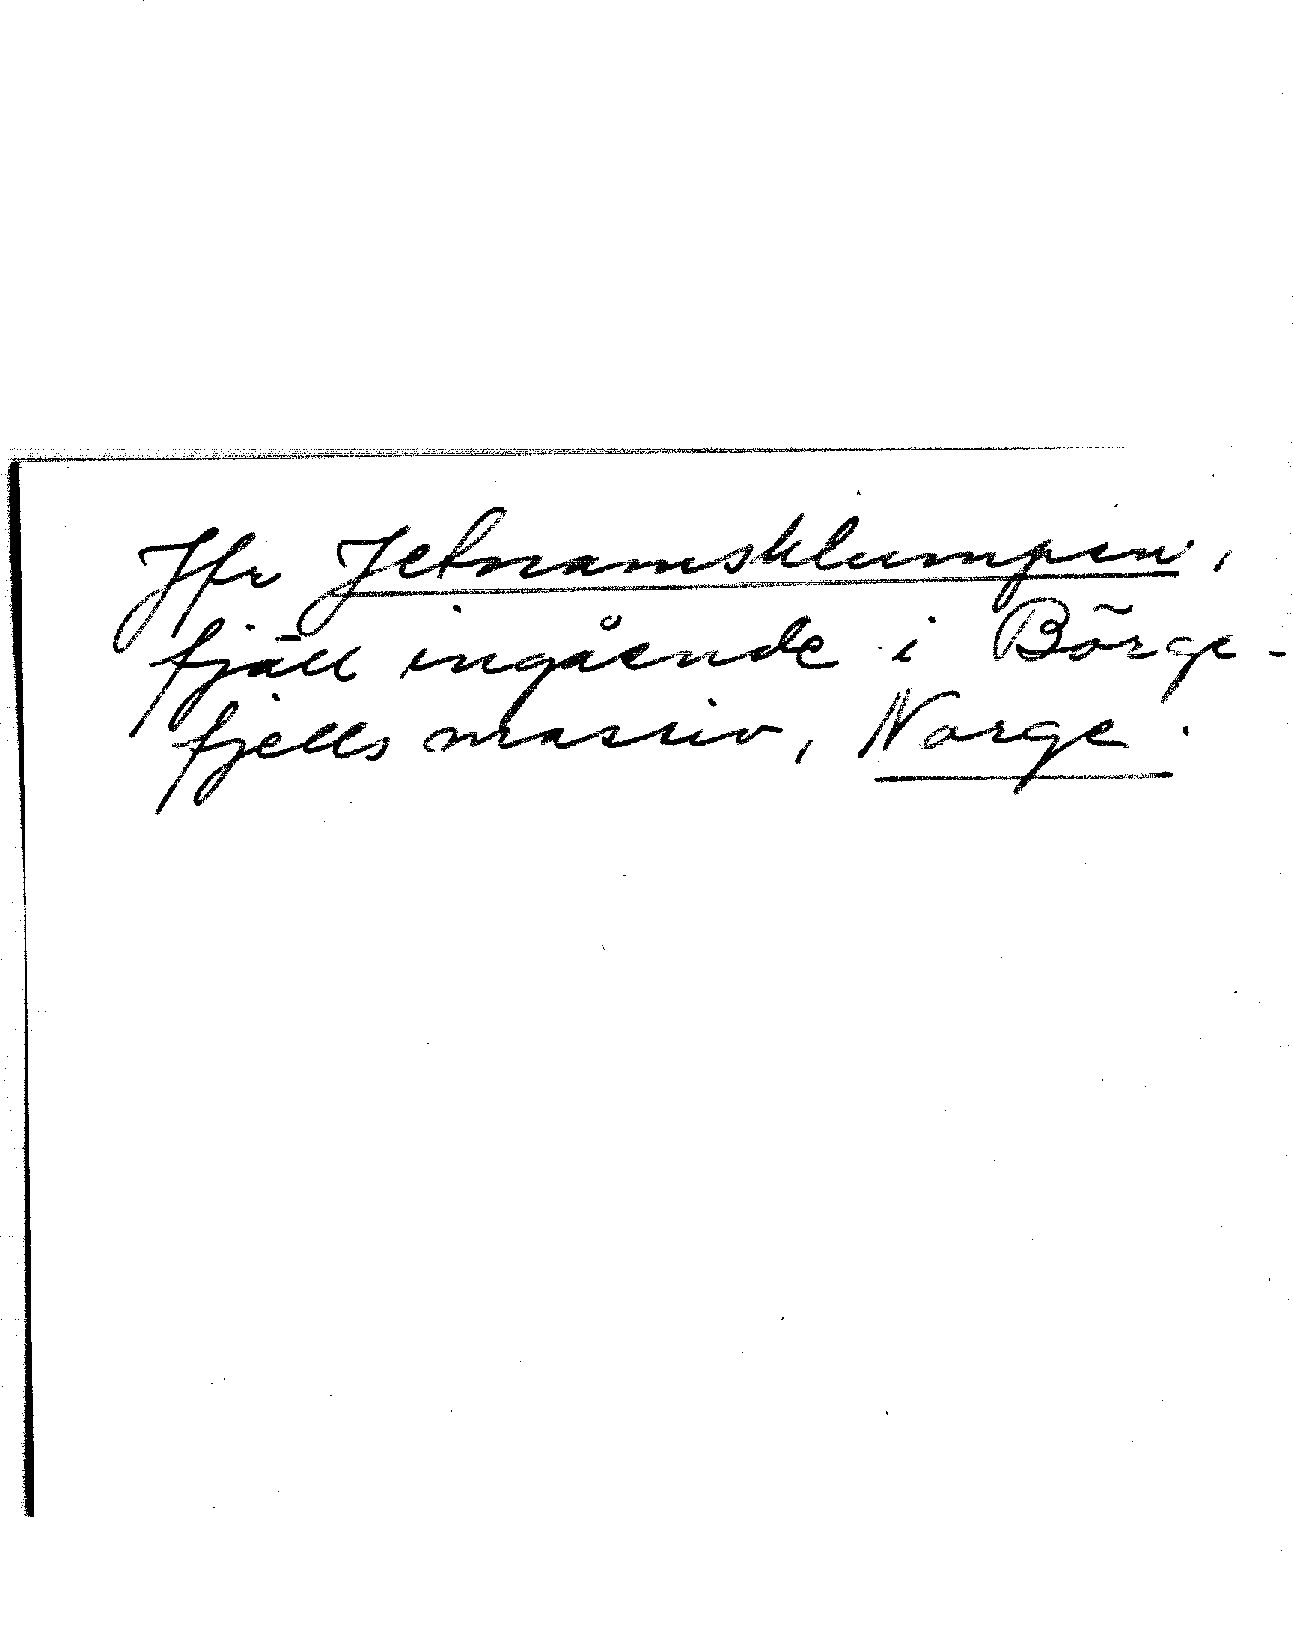 Jfr Jetnamsklumpen,
fjäll ingående i Börge-
fjells massiv, Norge.